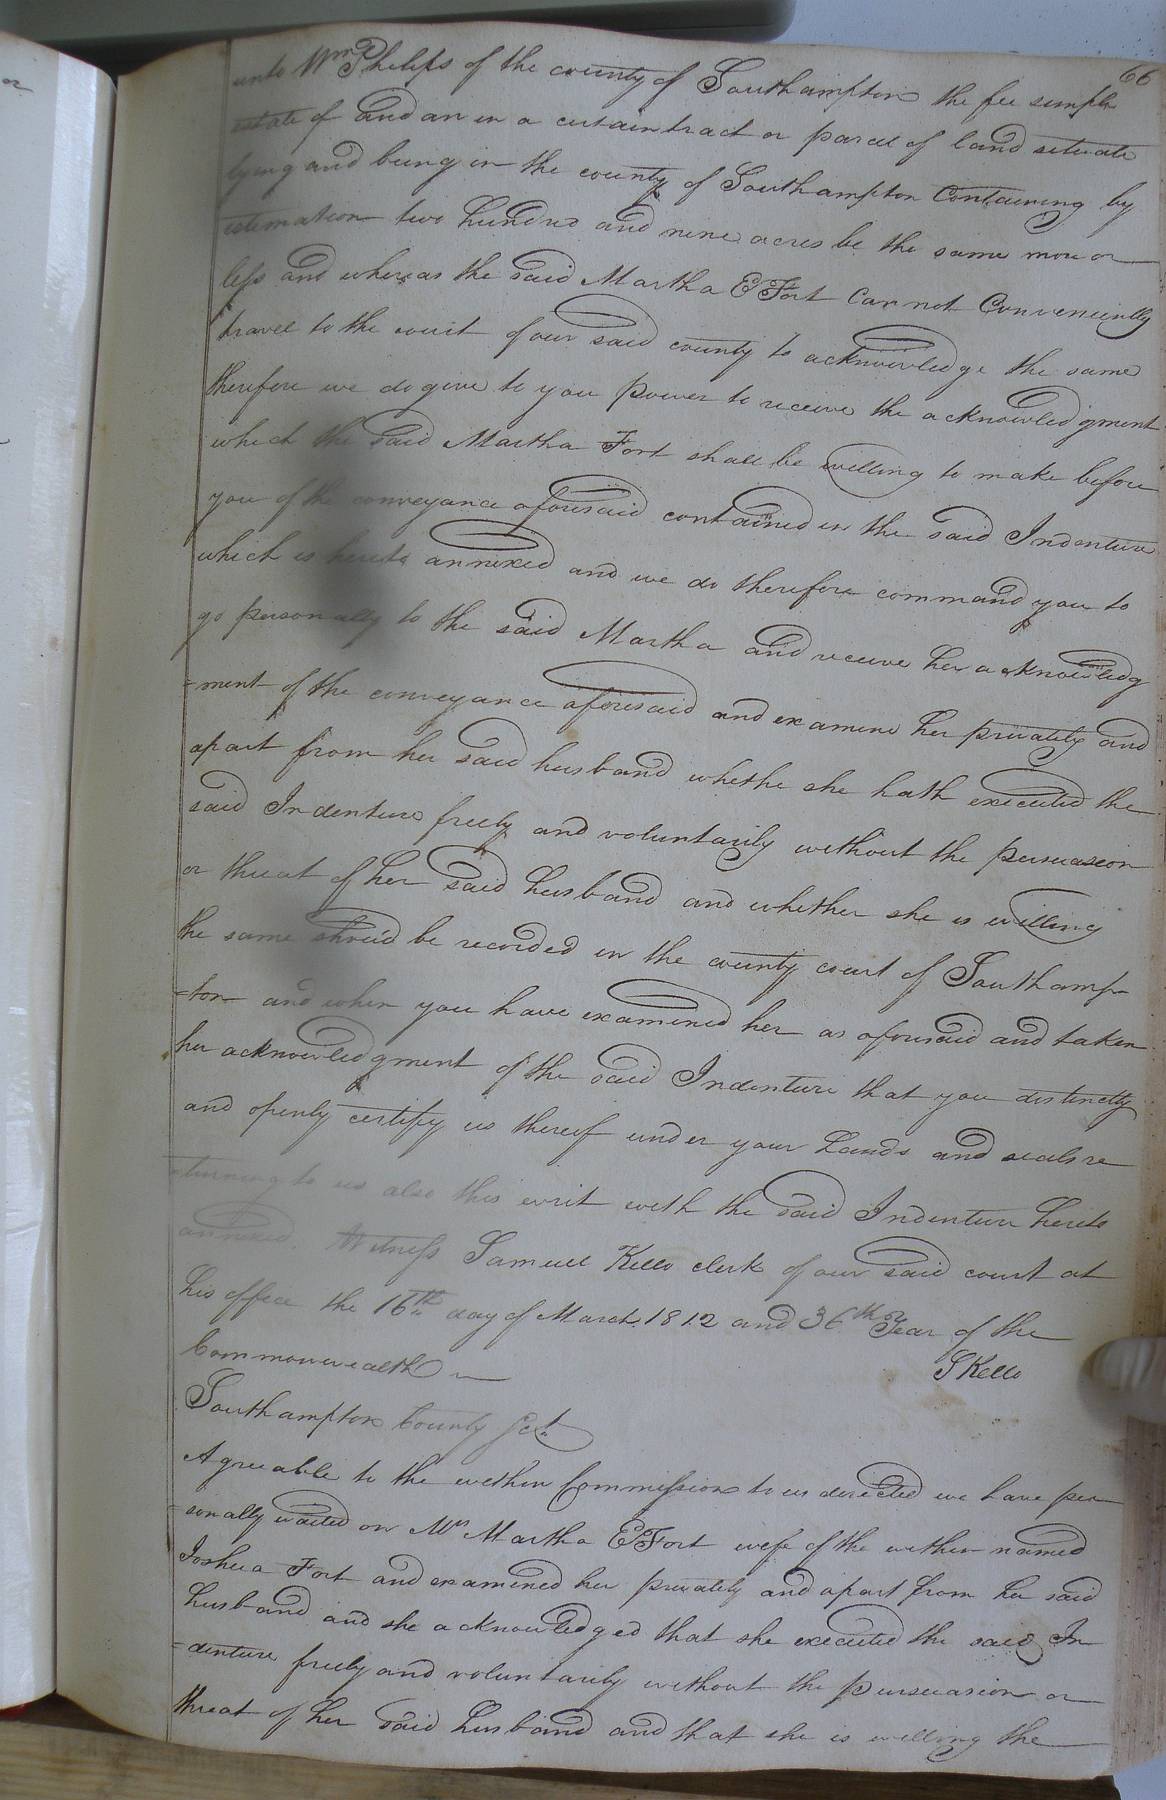 66
unto Wm Phelips of the county of Southampton the fee simple
estate of and an in a certain tract or parcel of land situate
lying and being in the county of Southampton Containing by
estimation two hundred and nine acres be the same more or
less and whereas the said Martha E Fort Can not Conveniently
travel to the court of our said county to acknowledge the same
therefore we do give to you power to receive the acknowledgment
which the said Martha Fort shall be willing to make before
you of the conveyance aforesaid contained in the said Indenture
which is hereto annexed and we do therefore command you to
go personally to the said Martha and receive her acknowledg
=ment of the conveyance aforesaid and examine her privately and
apart from her said husband whethe she hath executed the
said Indenture freely and voluntarily without the persuasion
or threat of her said husband and whether she is willing
the same should be recorded in the county court of Southamp
=ton and when you have examined her as aforesaid and taken
her acknowledgment of the said Indenture that you distinctly
and openly certify us thereof under your hands and seals re
=turning to us also this writ with the said Indenture hereto
annexed. Witness Samuel Kello clerk of our said court at
his office the 16th day of March 1812 and 36th Year of the
Commonwealth
S Kello
Southampton County Sct.
Agreeable to the within Commission to us directed we have per
=sonally waited on Mrs Martha E Fort wife of the within named
Joshua Fort and examined her privately and apart from her said
husband and she acknowledged that she executed the said In
=denture freely and voluntarily without the persuasion or
threat of her said husband and that she is willing the